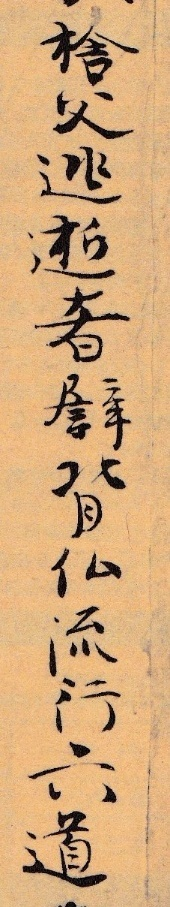 捨父逃逝者辟背仏流行六道